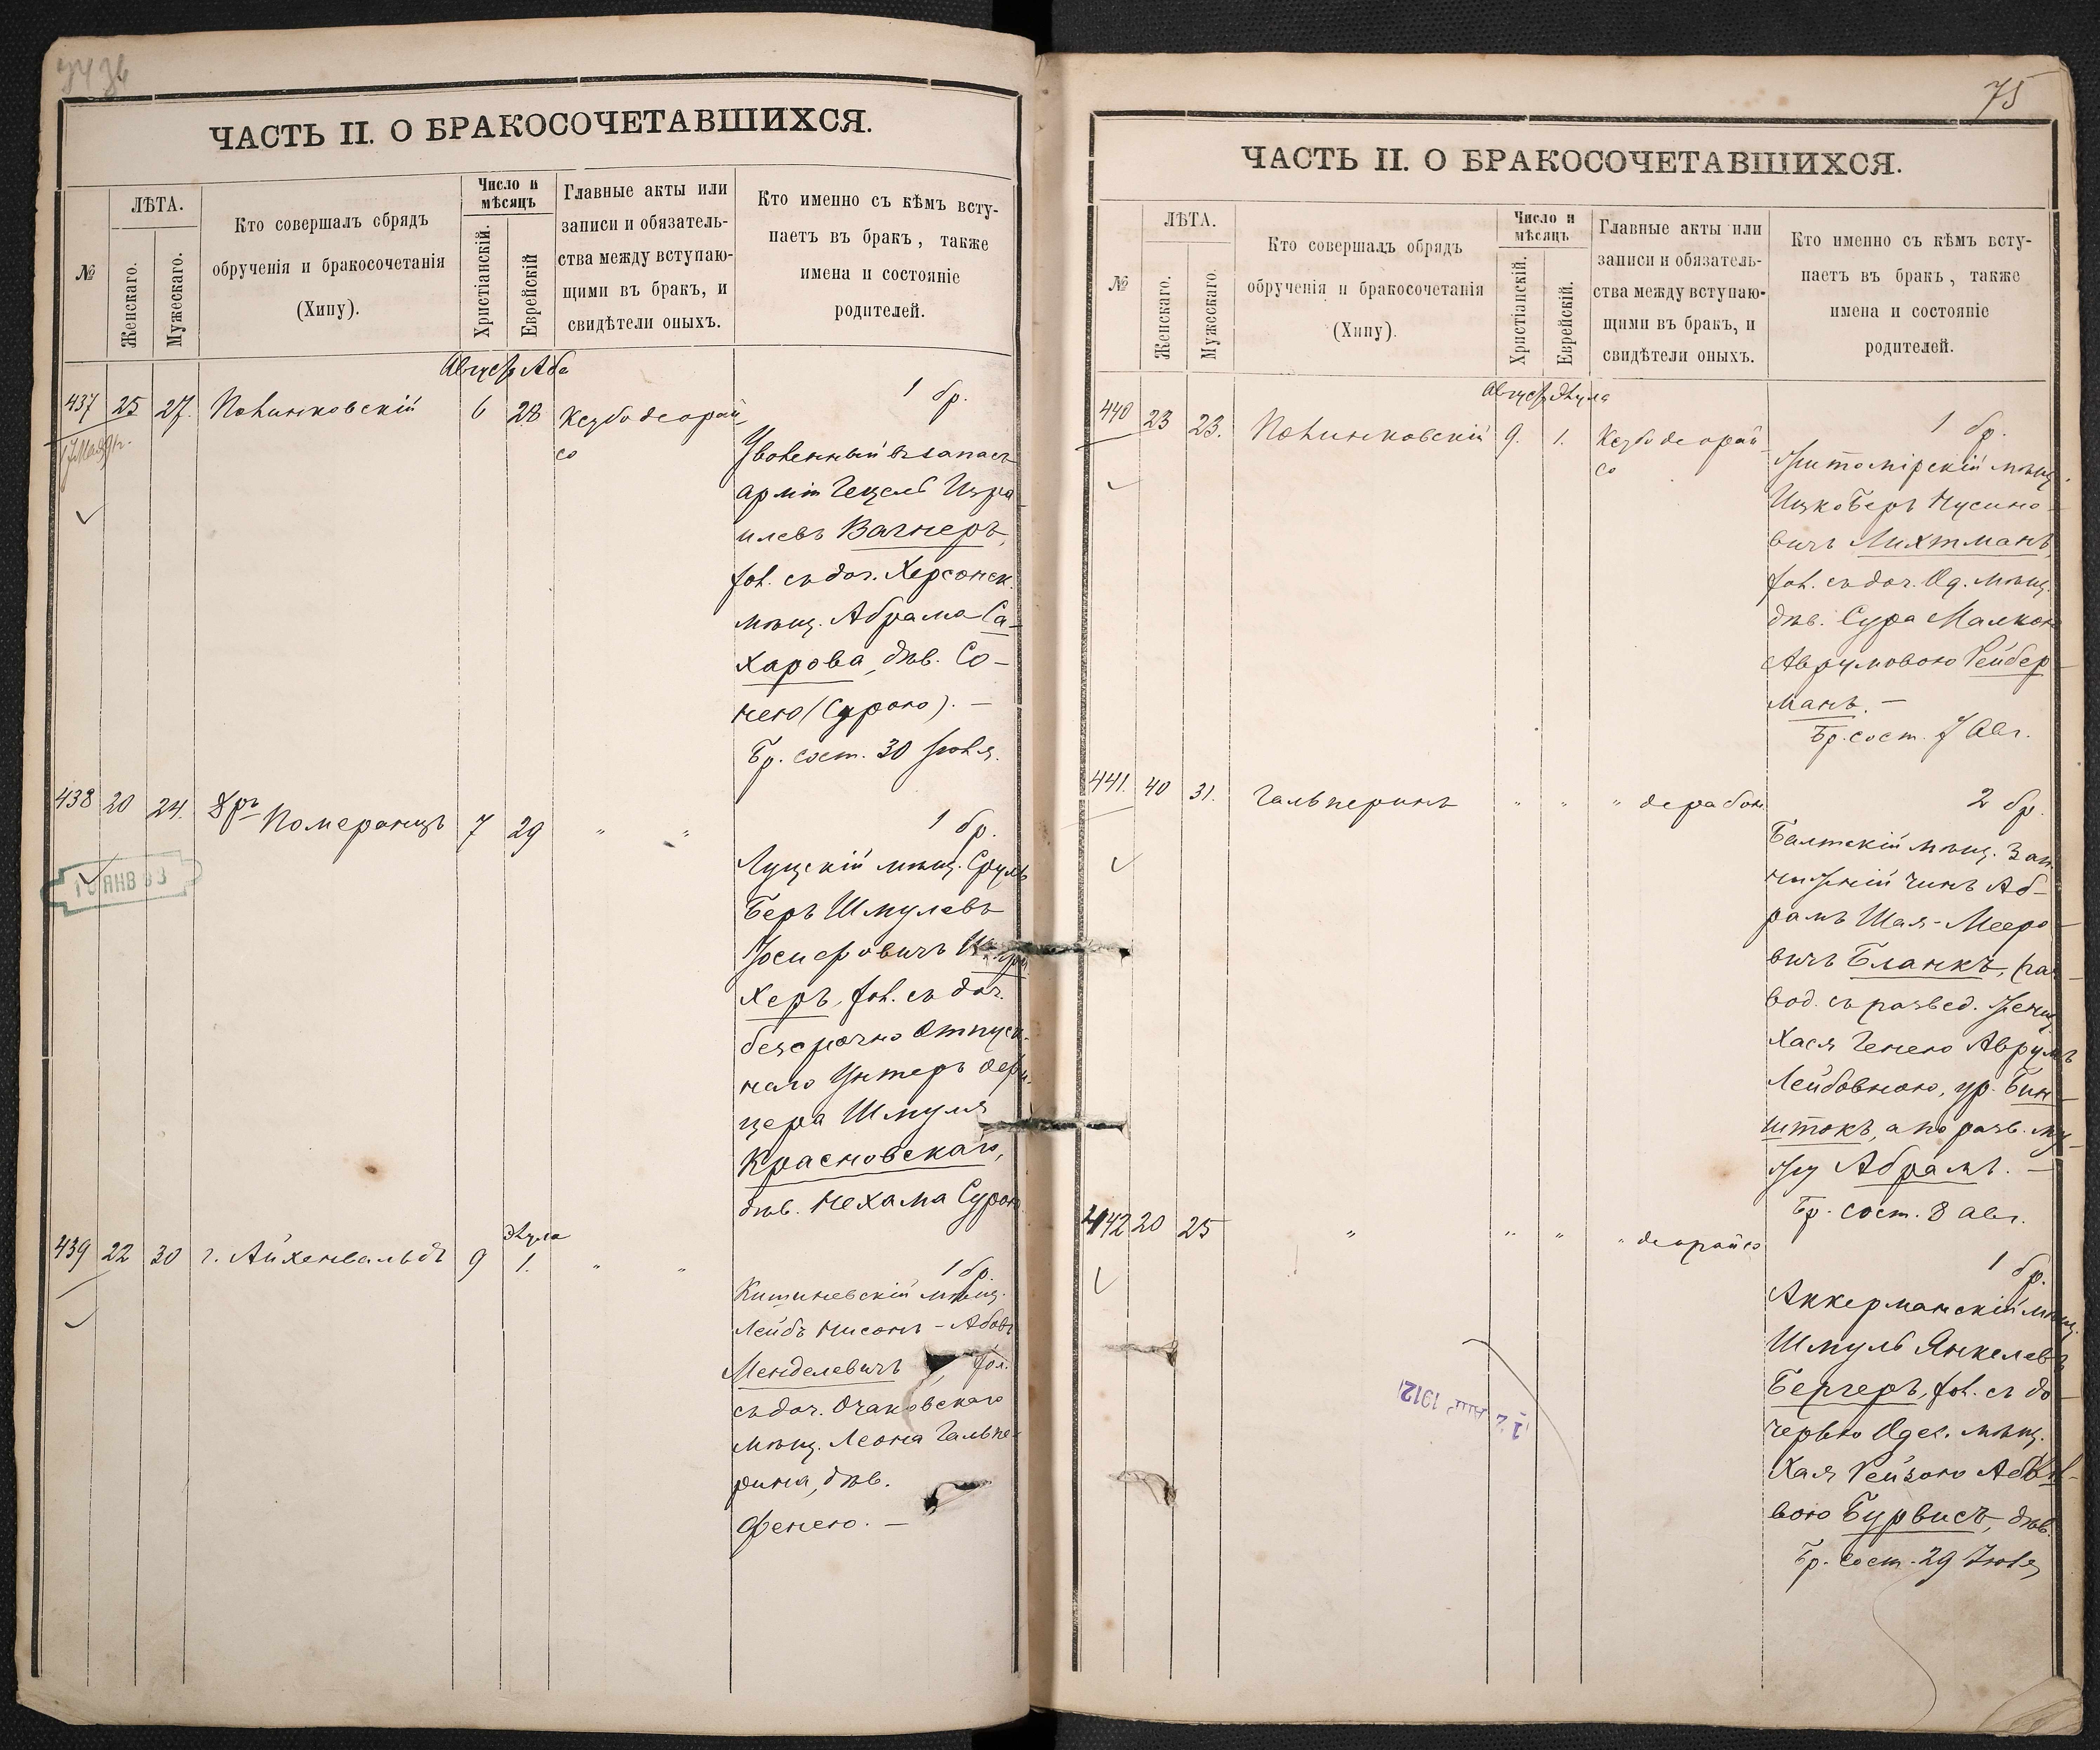 ЧАСТЬ II. О БРАКОСОЧЕТАВШИХСЯ.
№
ЛѢТА.
Женскаго.
Мужескаго.
Кто совершалъ сбрядъ
обрученія и бракосочетанія
(Хипу).
Число и
мѣсяцъ
Христіанскій.
Еврейскій
Главные акты или
записи и обязатель-
ства между вступаю-
щими въ бракъ, и
свидѣтели оныхъ.
Кто именно съ кѣмъ всту-
паетъ въ бракъ, также
имена и состояніе
родителей.
Август Аба
437 25 27. Полинковскій 6 28 Кезубо деорай-
со
1 бр.
Уволенный въ запасъ
арміи Гецель Изра-
илевъ Вагнеръ,
хол. съ доч. Херсонск.
мѣщ. Абрама Са-
харова, дѣв. Со-
нею (Сурою). —
Бр. сост. 30 Іюля.
438 20 24. Др. Померанцъ 7 29 " "
1 бр.
Луцскій мѣщ. Сруль
Беръ Шмулевъ
Іосифовичъ
херъ, хол. съ доч.
безсрочно отпуск-
наго Унтеръ офи-
цера Шмуля
Красновскаго,
дѣв. Нехама Сурою
10 ЯНВ 93
Элула
439 22 30 г. Айхенвальдъ 9 1. " "
1 бр.
Кишиневскій мѣщ.
Лейбъ Нисонъ-Абовъ
Менделевичъ, хол.
съ доч. Очаковскаго
мѣщ. Леона Гальпе-
рина, дѣв.
Фенею. —
75
ЧАСТЬ II. О БРАКОСОЧЕТАВШИХСЯ.
№
ЛѢТА.
Женскаго.
Мужескаго.
Кто совершалъ обрядъ
обрученія и бракосочетанія
(Хипу).
Число и
мѣсяцъ
Христіанскій.
Еврейскій.
Главные акты или
записи и обязатель-
ства между вступаю-
щими въ бракъ, и
свидѣтели оныхъ.
Кто именно съ кѣмъ всту-
паетъ въ бракъ, также
имена и состояніе
родителей.
Август Элула
440 23 23. Полинковскій 9. 1. Кезубо деорай-
со
1 бр.
Житомірскій мѣщ.
Ицко Беръ Нусино-
вичъ Лихтманъ,
хол. съ доч. Од. мѣщ.
дѣв. Сура Малкою
Аврумовою Рейдер-
манъ. —
Бр. сост. 7 Авг.
441. 40 31. Гальперинъ " " " дерабон
2 бр.
Балтскій мѣщ. Зап.
нижній чинъ Аб-
рамъ Шая-Мееро-
вичъ Бланкъ, раз-
вод. съ развед. женщ.
Хася Генею Аврумъ
Лейбовною, ур. Бин-
штокъ, а по разв. му-
жу Абрамъ. —
Бр. сост. 8 Авг.
442 20 25 " " " " деорайсо
1 бр.
Аккерманскій мѣщ.
Шмуль Янкелевъ
Бергеръ, хол. съ до-
черью Одес. мѣщ.
Хая Рейзою
вою Бурвисъ, дѣв.
Бр. сост. 29 Іюля
1912